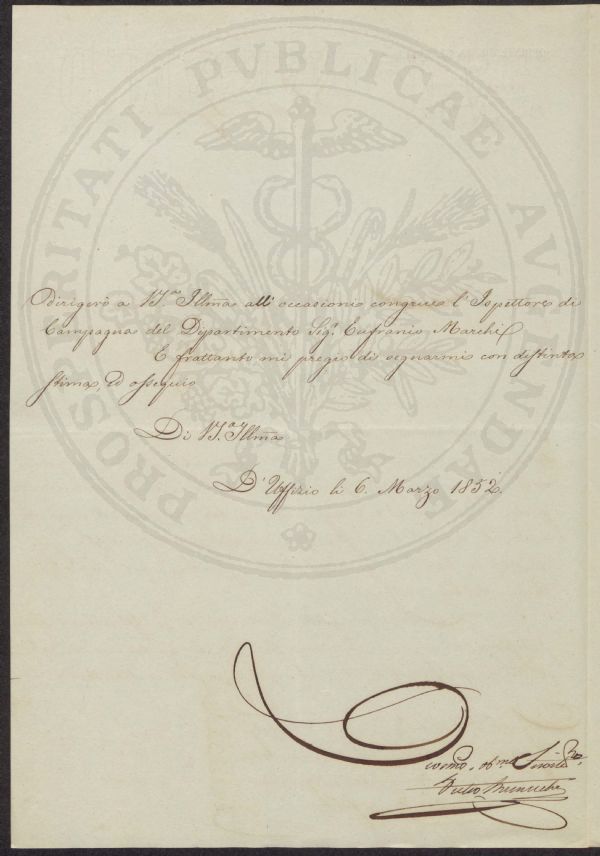 PROSPERITATI PVBLICAE AVGENDAE
Dirigerò a V.S.ma Illma all'occasione congrua l'Ispettore di
Campagna del Dipartimento Sig.r Eufranio Marchi
E frattanto mi pregio di segnarmi con distinta
stima, ed ossequio
Di V.S.a Illma
D'Uffizio li 6. Marzo 1852.
Pietro